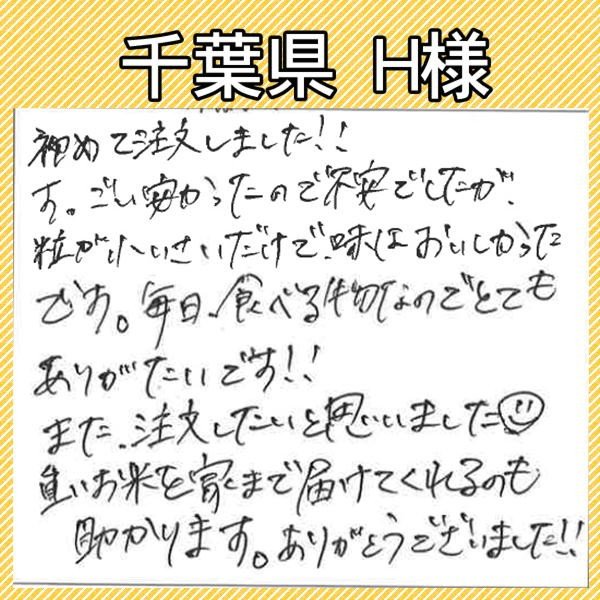 千葉県 H様
初めて注文しました!!
す。ごい安かったので不安でしたが、
粒が小いさいだけで、味はおいしかった
です。毎日、食べる物なのでとても
ありがたいです!!
また、注文したいと思いました
重いお米を家まで届けてくれるのも
助かります。ありがとうございました!!